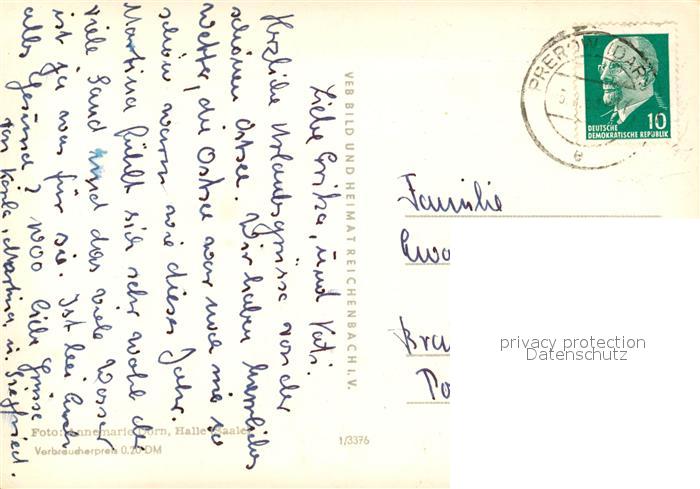 Liebe Erika, und Vati.
Herzliche Urlaubsgrüsse von der
schönen Ostsee. Wir haben herrliches
Wetter, die Ostsee war noch nie so
schön warm wie dieses Jahr.
Martina fühlt sich sehr wohl der
viele Sand und das viele Wasser
ist ja was für sie. Ist bei Euch
alles gesund? 1000 liebe Grüsse
von Karla, Martina, u. Siegfried.
VEB BILD UND HEIMAT REICHENBACH I. V.
Foto: Annemarie Dorn, Halle (Saale)
Verbraucherpreis 0,20 DM
1/3376
PREROW (DARSS)
e
10
DEUTSCHE
DEMOKRATISCHE REPUBLIK
Familie
privacy protection
Datenschutz